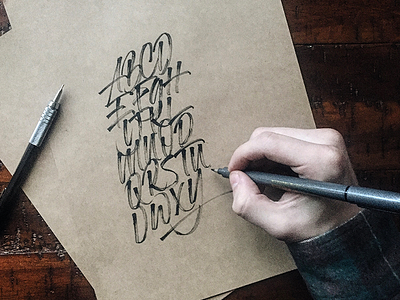 ABCD
EFGH
IJKL
MNOP
QRSTU
VWXY